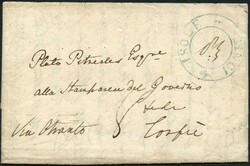 Plato Petrides Esqre
alla Stamperia del Governo
Sede
Corfù
Via Otranto
ISOLE